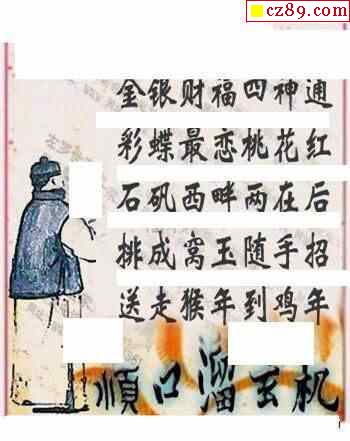 cz89.com
金银财福四神通
彩蝶最恋桃花红
石矾西畔两在后
排成窝玉随手招
送走猴年到鸡年
順口溜玄机